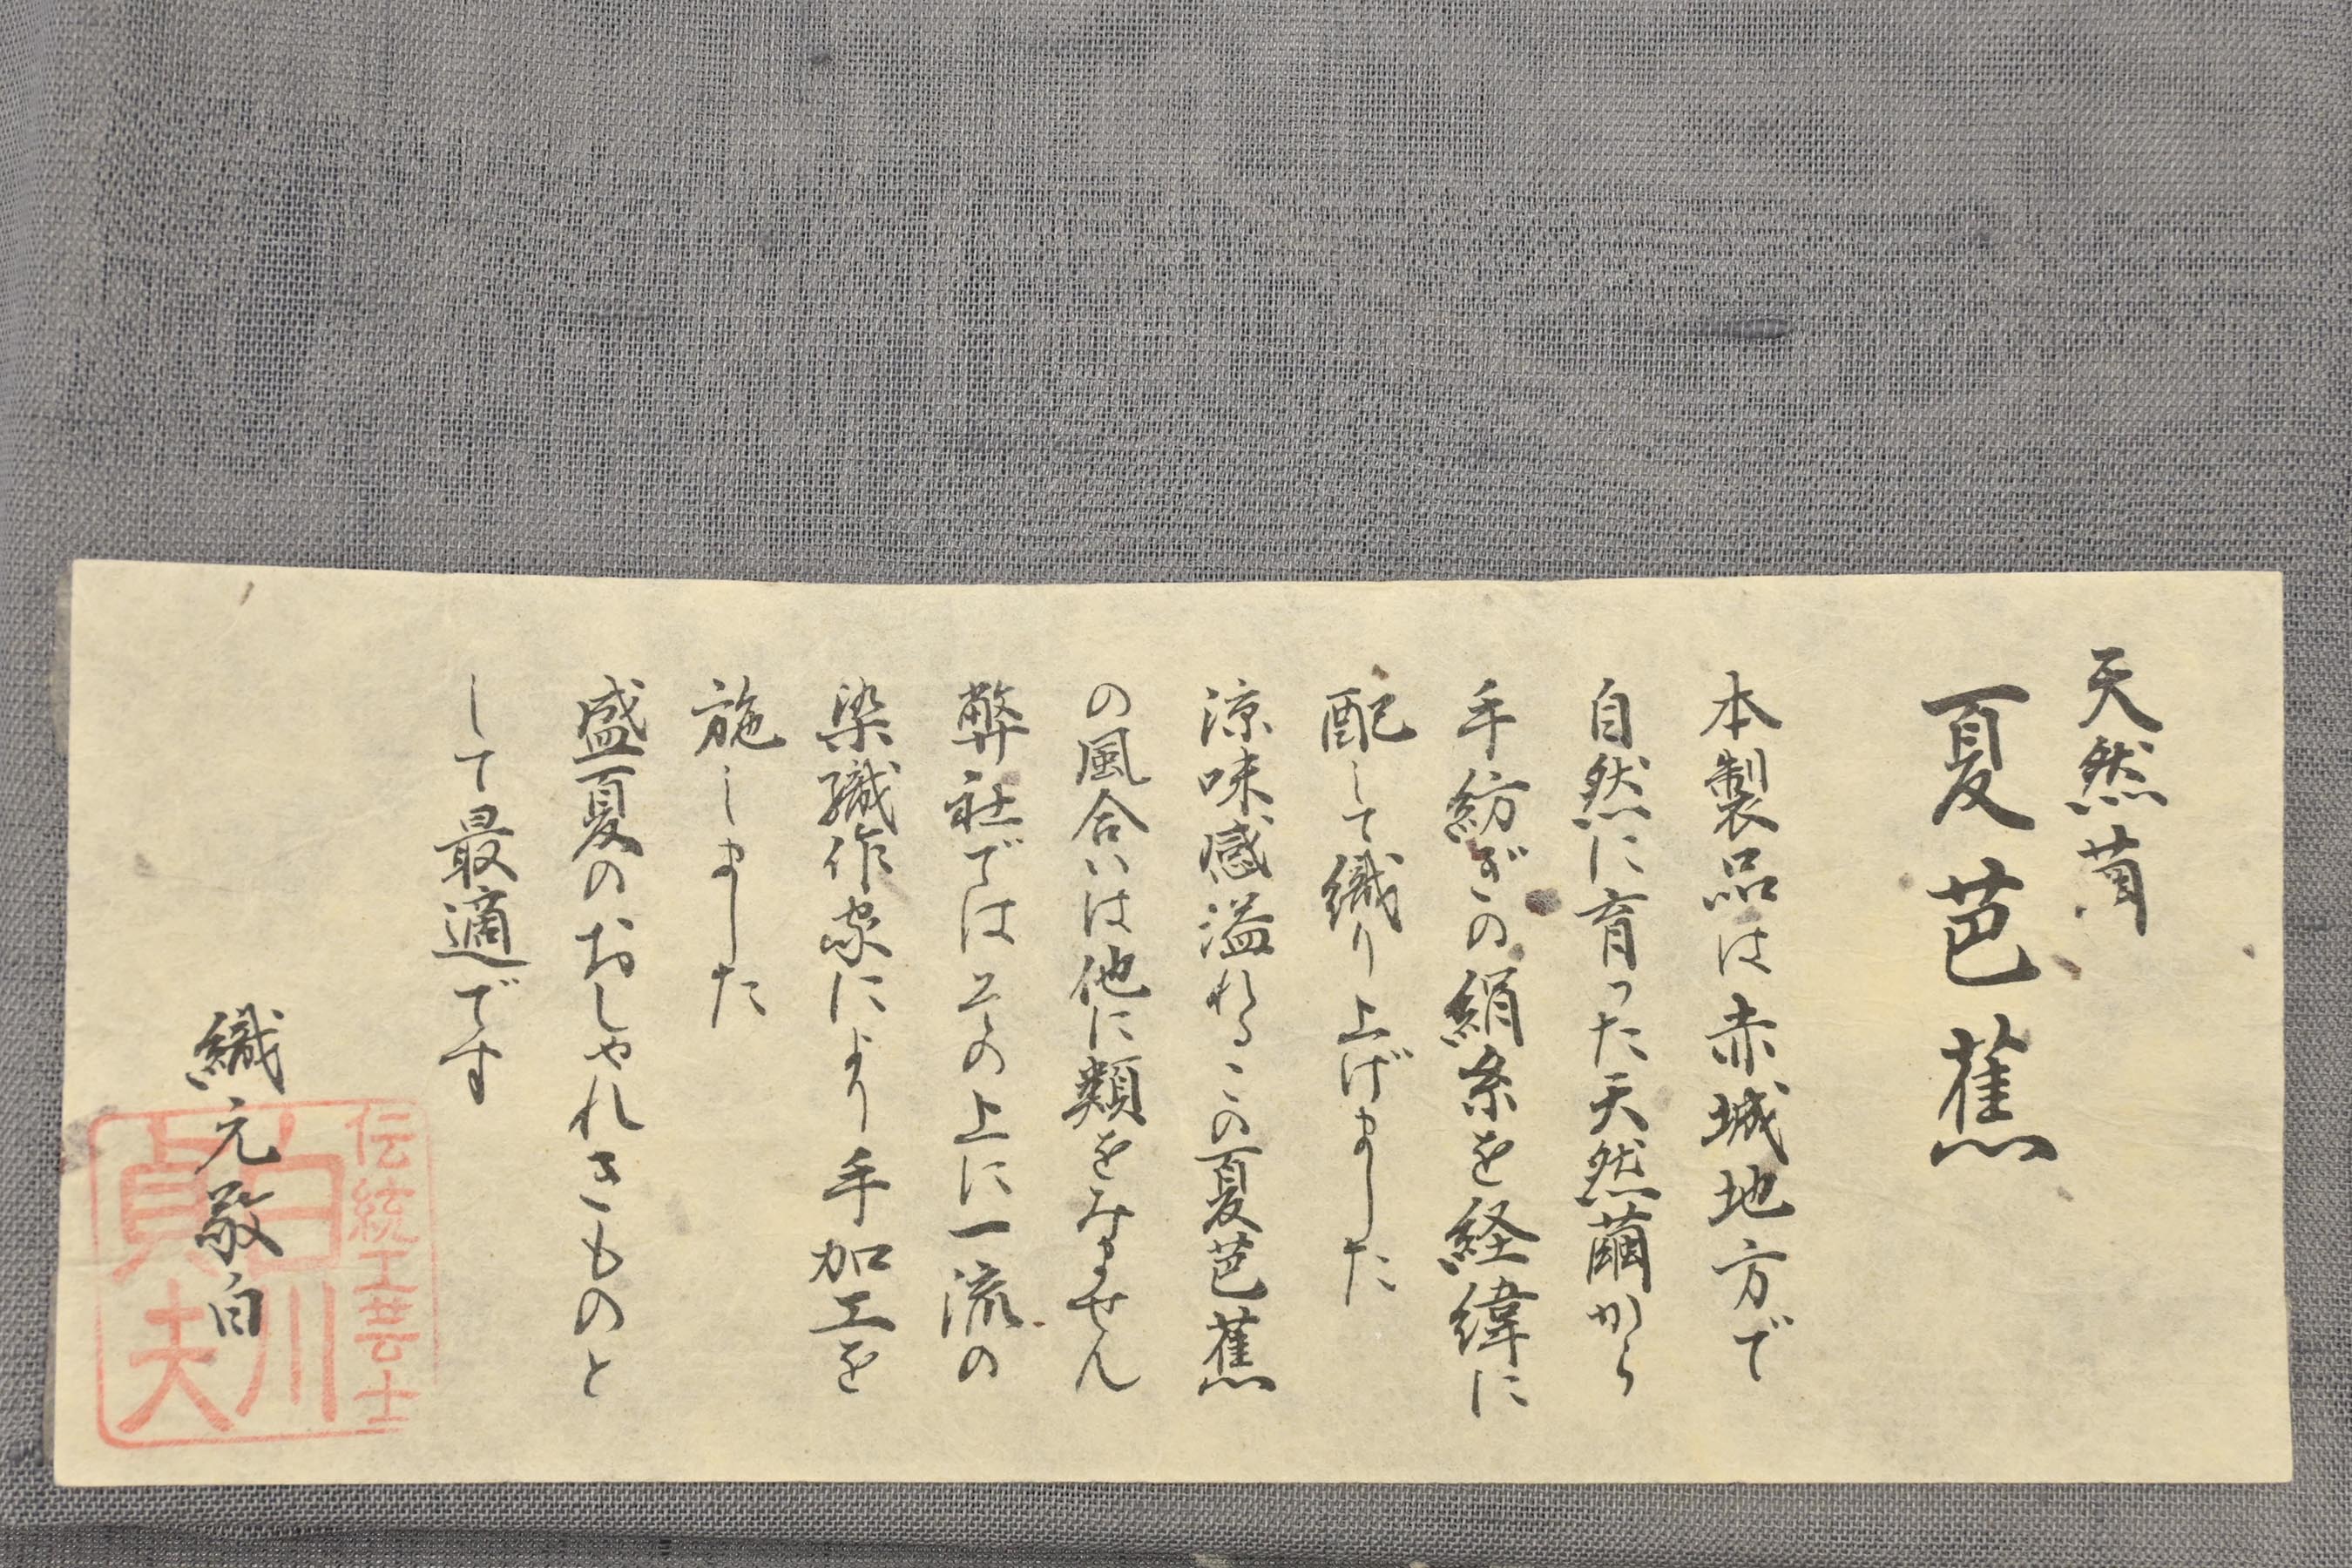 天然繭
夏芭蕉
本製品は赤城地方で
自然に育った天然繭から
手紡ぎの絹糸を経緯に
配して織り上げました
涼味感溢れるこの夏芭蕉
の風合いは他に類をみません
弊社ではその上に一流の
染織作家により手加工を
施しました
盛夏のおしゃれきものと
して最適です
織元敬白
伝統工芸士
白川
貞夫